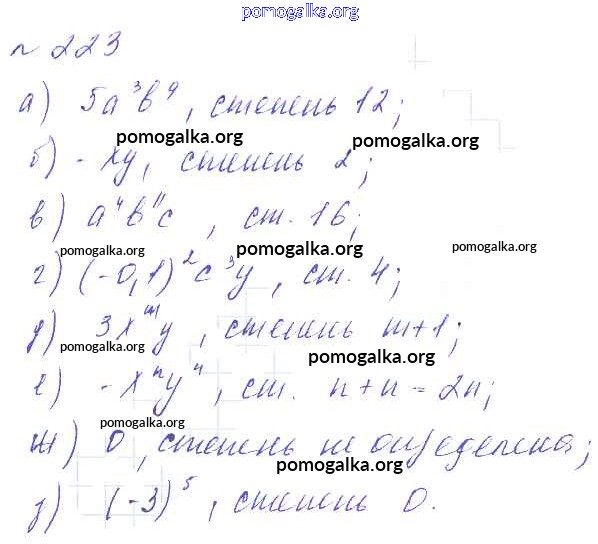 pomogalka.org
№ 223
а) 5a³b⁹, степень 12;
pomogalka.org pomogalka.org
б) -xy, степень 2;
в) a⁴b¹¹c, ст. 16;
pomogalka.org pomogalka.org pomogalka.org
г) (-0,1)²c³y, ст. 4;
д) 3xᵐy, степень m+1;
pomogalka.org pomogalka.org
е) -xⁿyⁿ, ст. n+n=2n;
pomogalka.org
ж) 0, степень не определена;
pomogalka.org
з) (-3)⁵, степень 0.